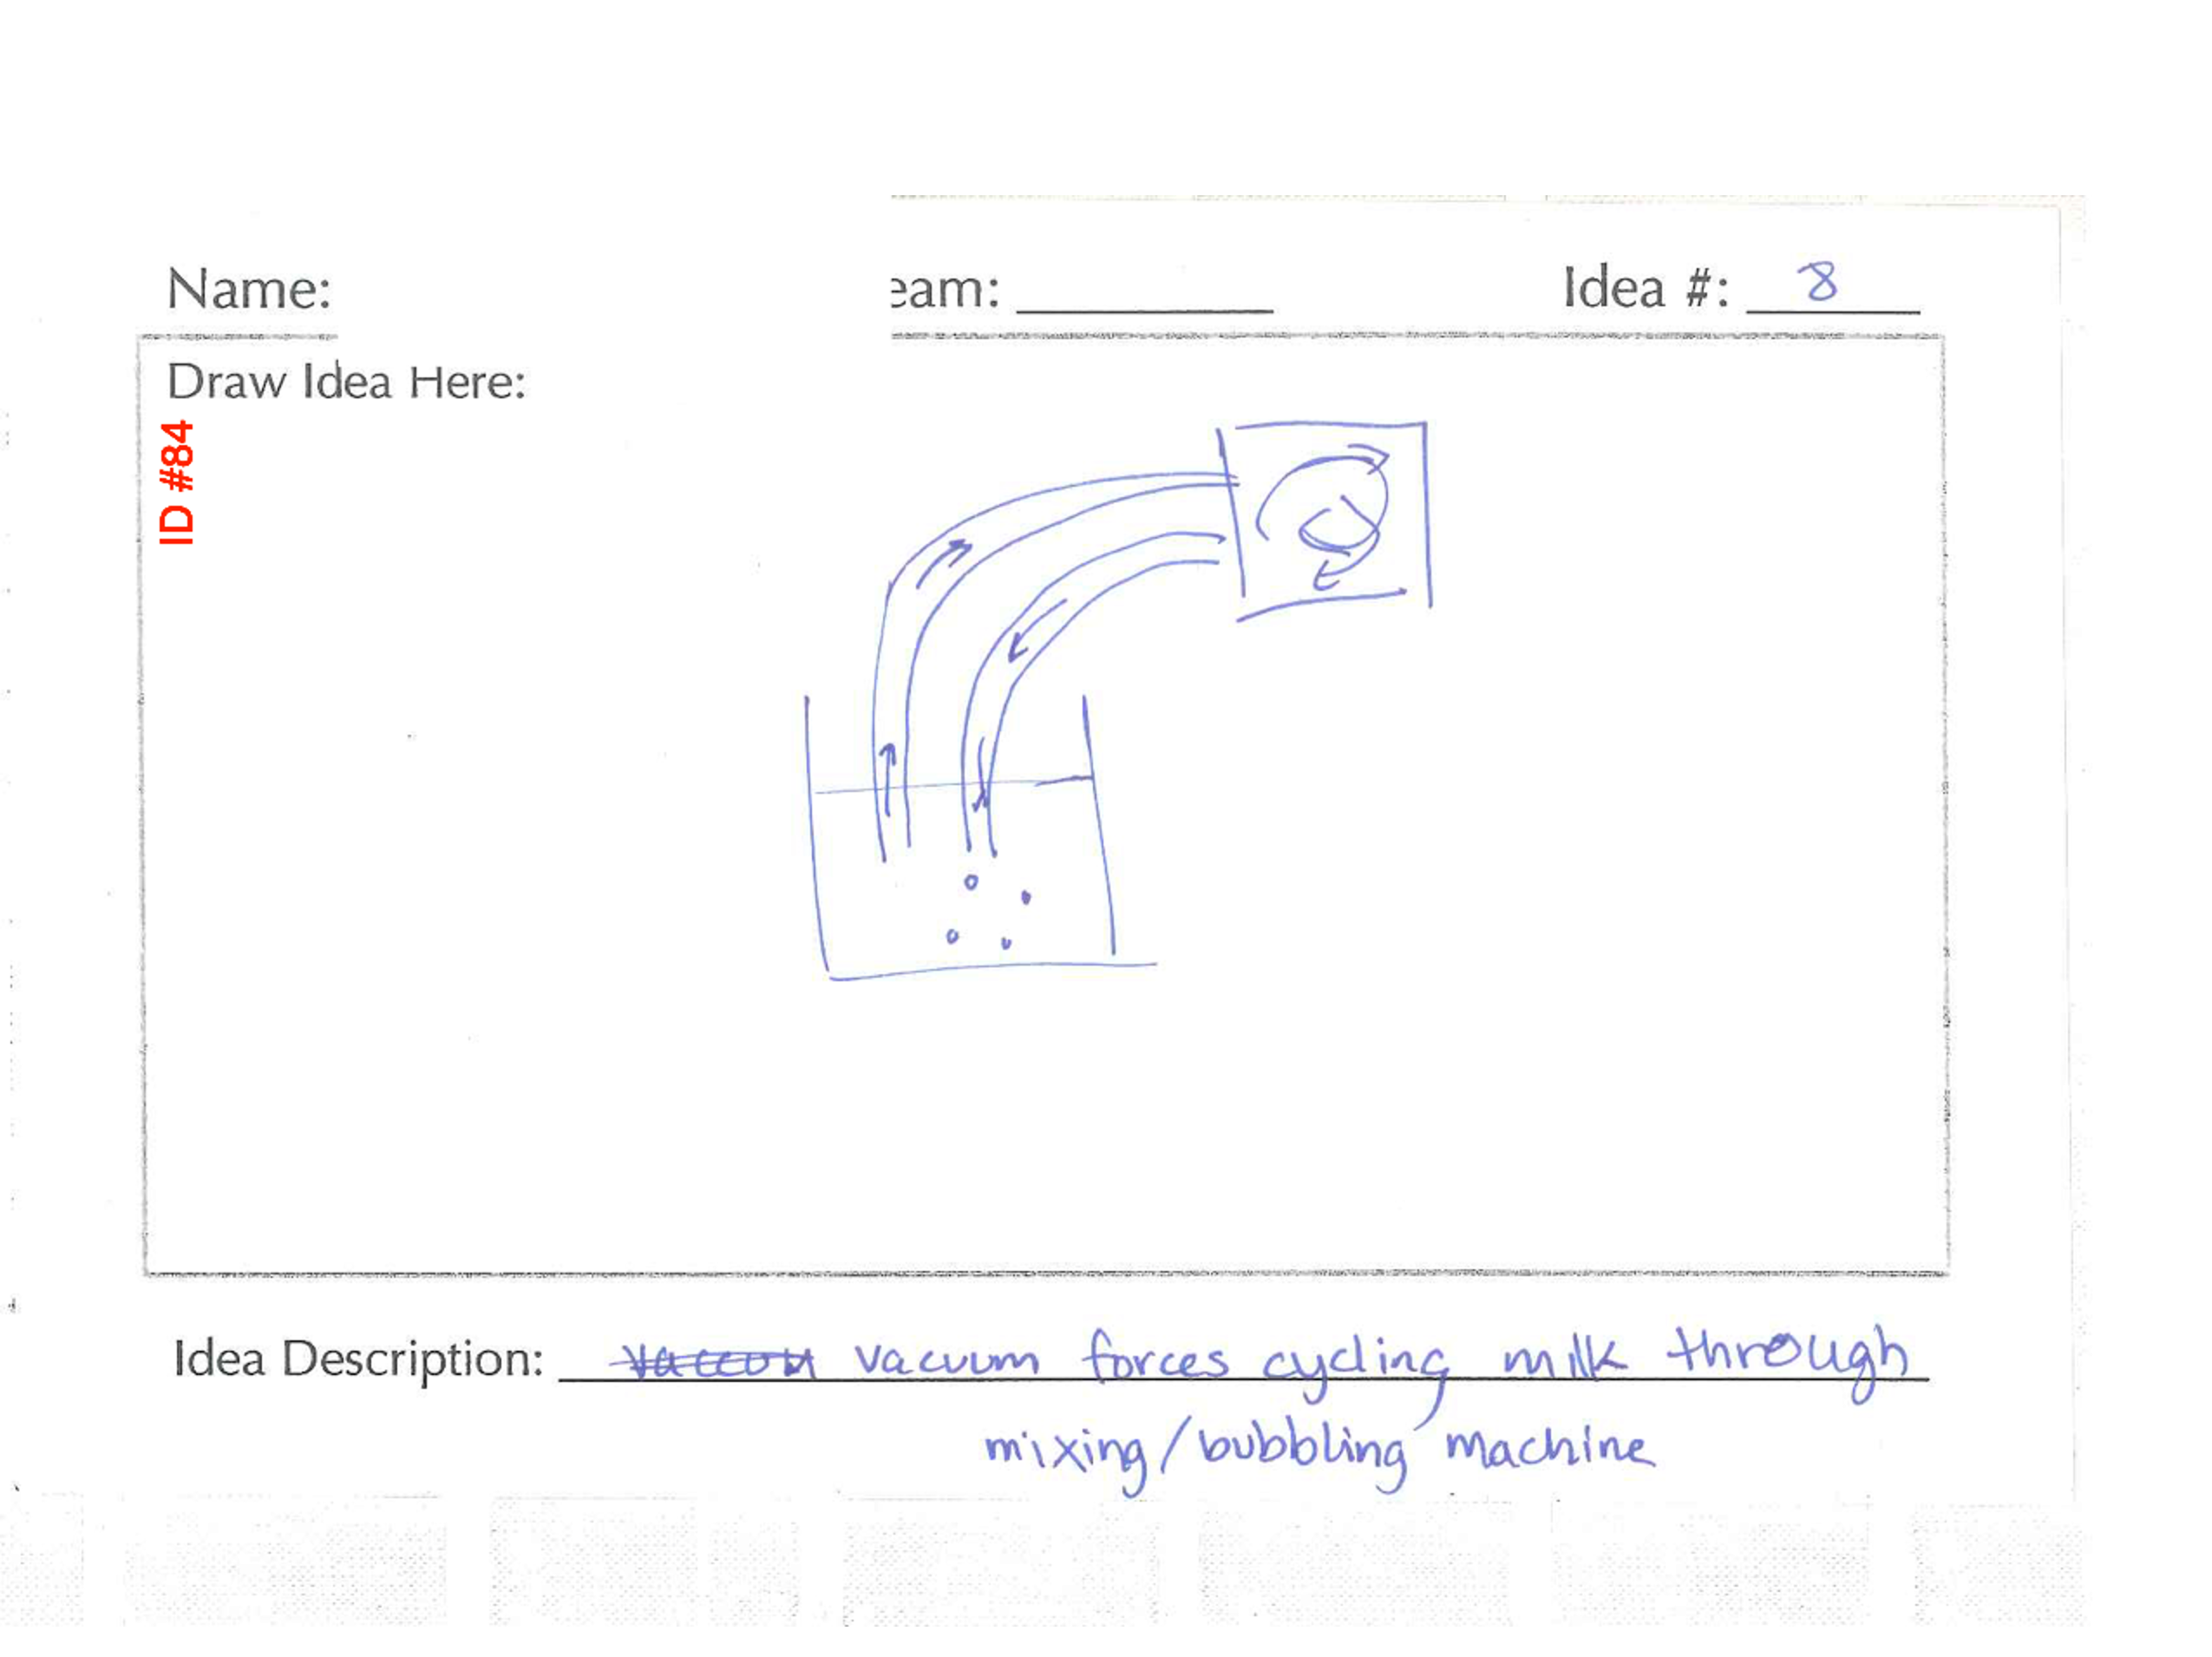 Name: eam: Idea #: 8
Draw Idea Here:
ID #84
Idea Description: vacuum forces cycling milk through
mixing/bubbling machine